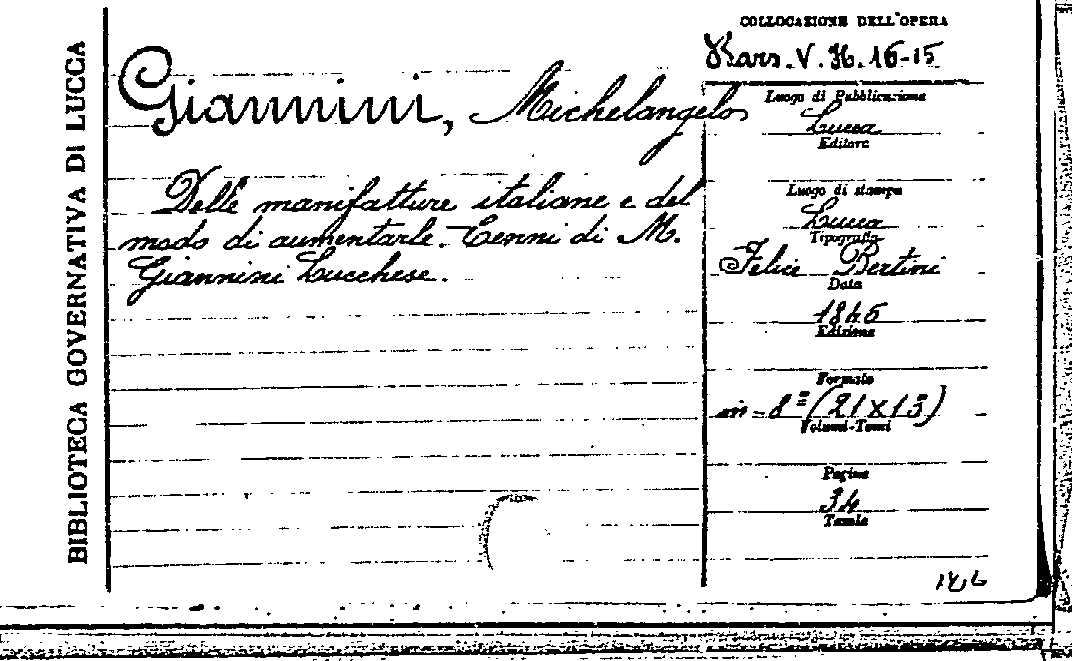 BIBLIOTECA GOVERNATIVA DI LUCCA
Giannini, Michelangelo
Delle manifatture italiane e del
modo di aumentarle. Cenni di M.
Giannini Lucchese.
COLLOCAZIONE DELL'OPERA
Bars. V. H. 16-15
Luogo di Pubblicazione
Lucca
Editore
Luogo di stampa
Lucca
Tipografia
Felice Bertini
Data
1846
Edizione
Formato
in-8º (21x13)
Volumi-Tomi
Pagine
34
Tavole